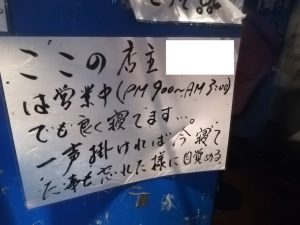 ここの店主
は営業中(PM 9:00〜AM 3:00)
でも良く寝てます…。
一声掛ければ今寝て
た事も忘れた様に目覚める。